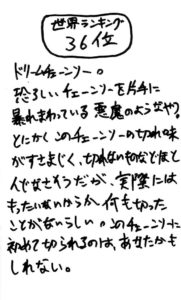 世界ランキング
36位
ドリームチェーンソー。
恐ろしいチェーンソーを片手に
暴れまわっている悪魔のようなやつ。
とにかくこのチェーンソーの切れ味
がすさまじく、切れないものなどほと
んどなさそうだが、実際には
もったいないからか何も切った
ことがないらしい。このチェーンソーに
初めて切られるのは、あなたかも
しれない。